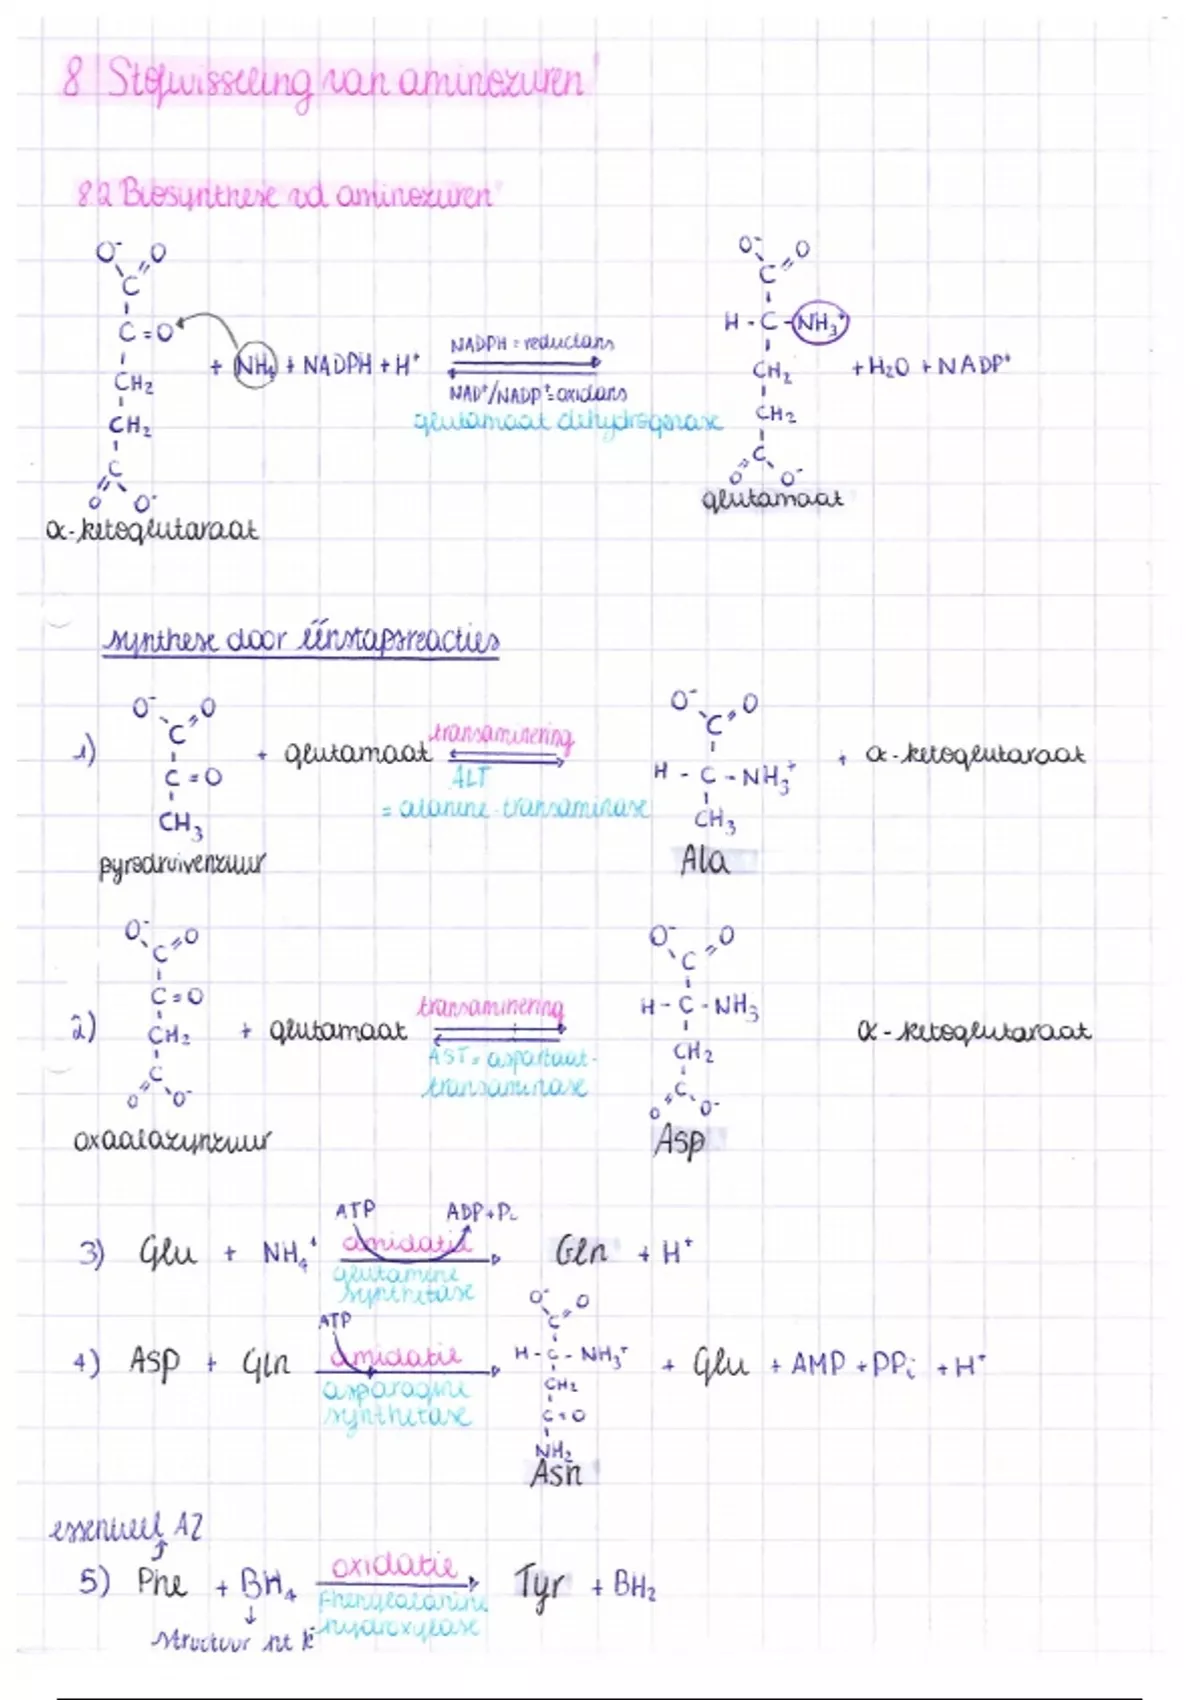 8 Stofwisseling van aminozuren
8.2 Biosynthese vd aminozuren
O⁻ O
C
C=O
CH₂
CH₂
C
O O⁻
α-ketoglutaraat
+ NH₄ + NADPH + H⁺
NADPH = reductans
NAD⁺/NADP⁺=oxidans
glutamaat dehydrogenase
O⁻ O
C
H - C - NH₃⁺
CH₂
CH₂
C
O O⁻
glutamaat
+ H₂O + NADP⁺
synthese door éénstapsreacties
1)
O⁻ O
C
C=O
CH₃
pyrodruivenzuur
+ glutamaat
transaminering
ALT
= alanine-transaminase
O⁻ O
C
H - C - NH₃⁺
CH₃
Ala
+ α-ketoglutaraat
2)
O⁻ O
C
C=O
CH₂
C
O O⁻
oxaalazijnzuur
+ glutamaat
transaminering
AST = aspartaat-
transaminase
O⁻ O
C
H - C - NH₃
CH₂
C
O O⁻
Asp
α-ketoglutaraat
ATP ADP+Pi
3) Glu + NH₄⁺ amidatie Gln + H⁺
glutamine
synthetase
ATP
4) Asp + Gln amidatie
asparagine
synthetase
O⁻ O
C
H - C - NH₃⁺
CH₂
C=O
NH₂
Asn
+ Glu + AMP + PPi + H⁺
essentieel AZ
5) Phe + BH₄ oxidatie Tyr + BH₂
Phenylalanine
hydroxylase
structuur nt k